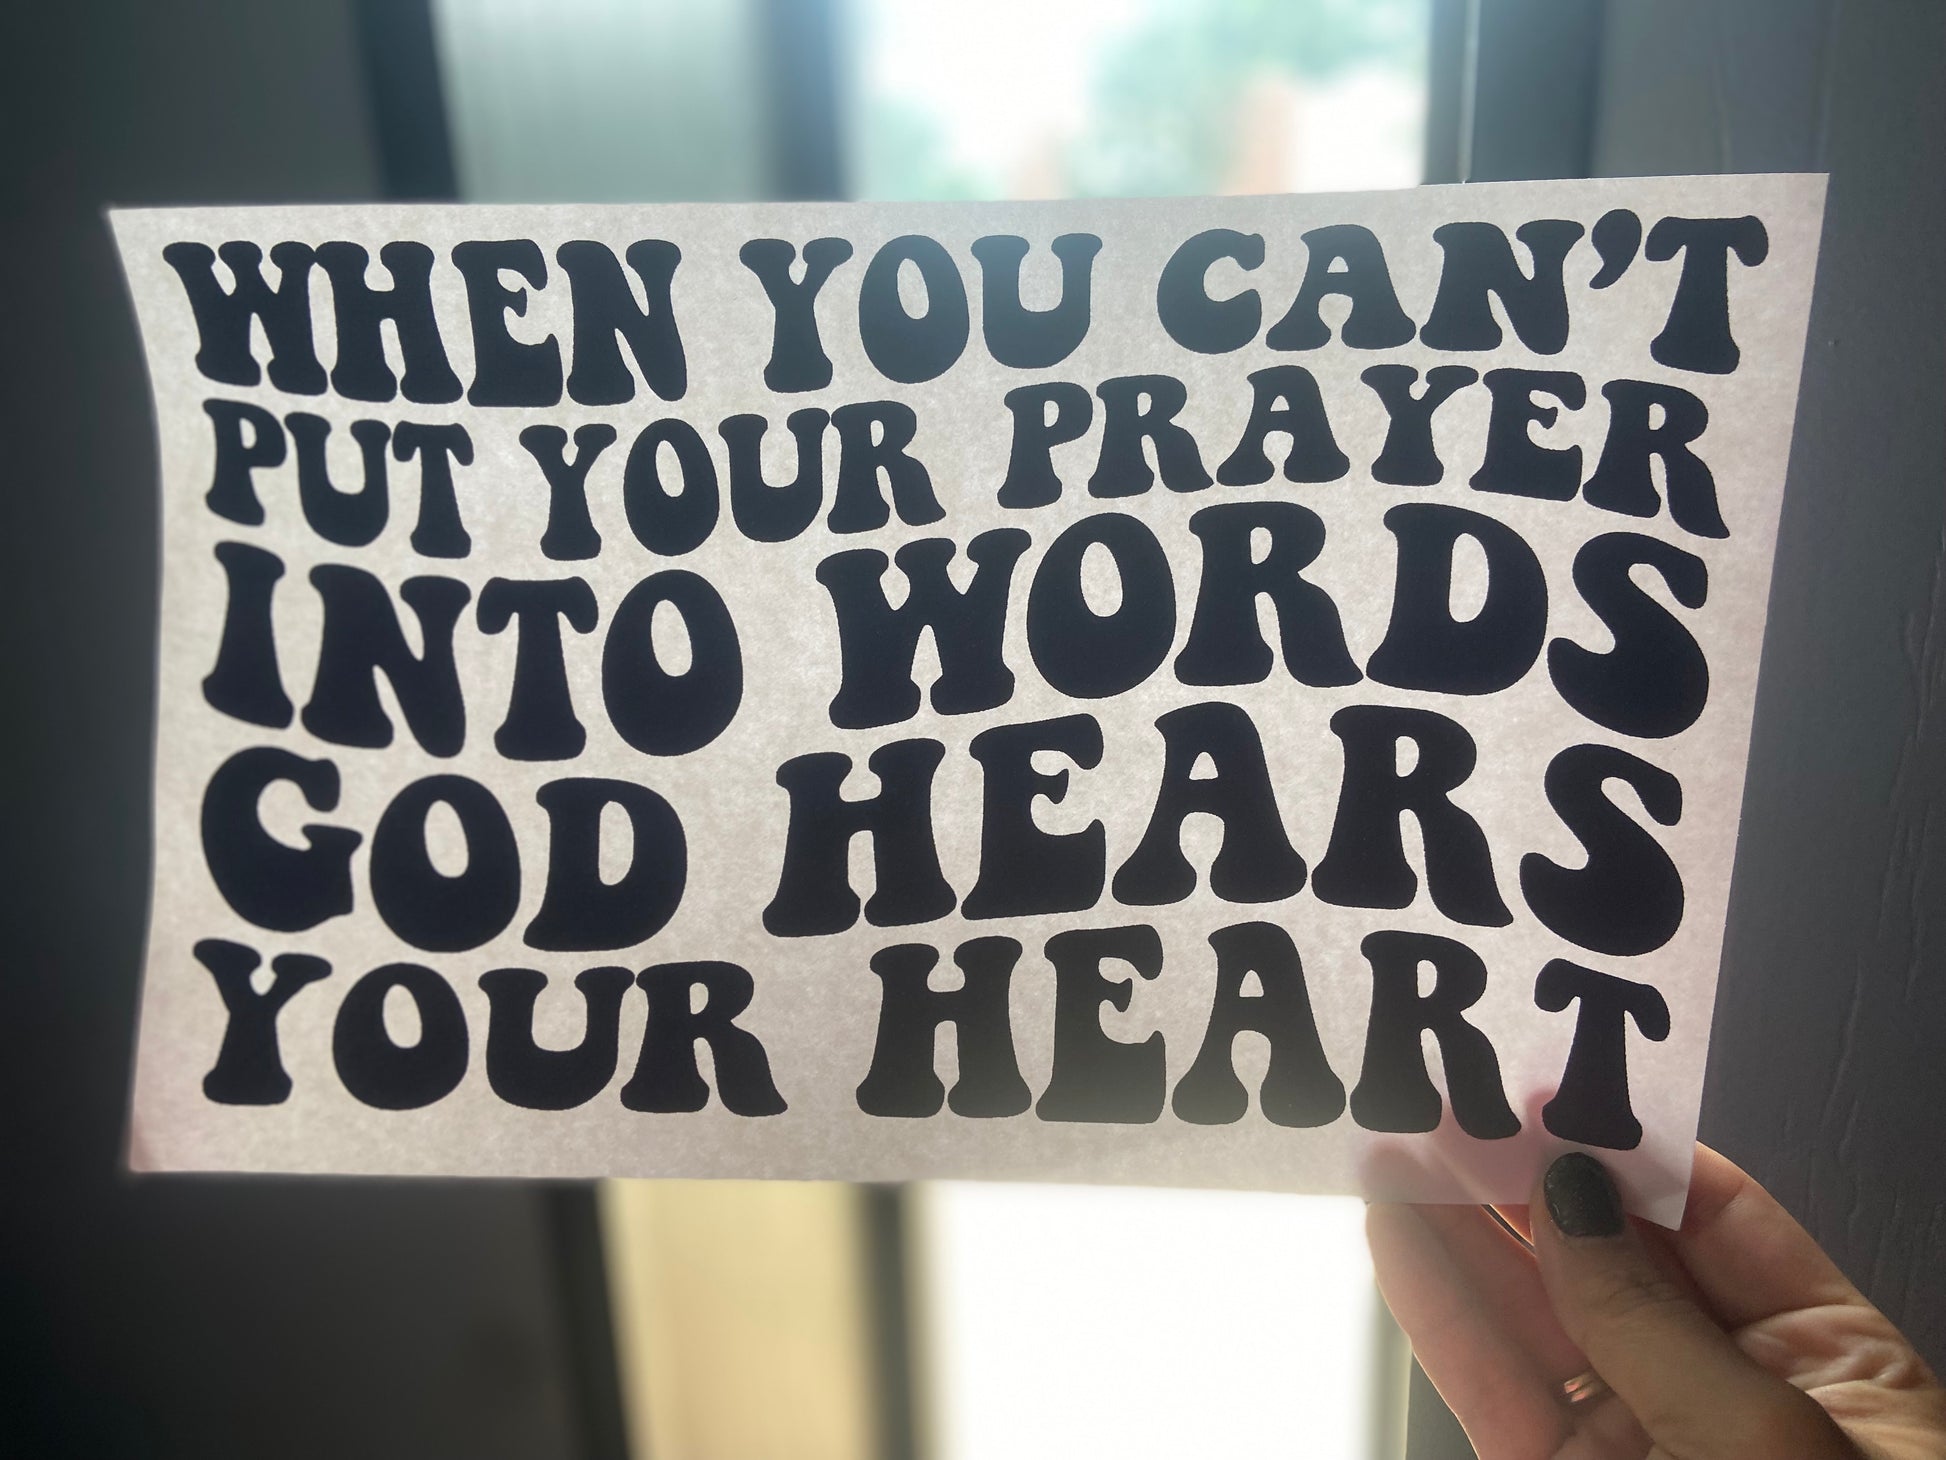 WHEN YOU CAN'T
PUT YOUR PRAYER
INTO WORDS
GOD HEARS
YOUR HEART